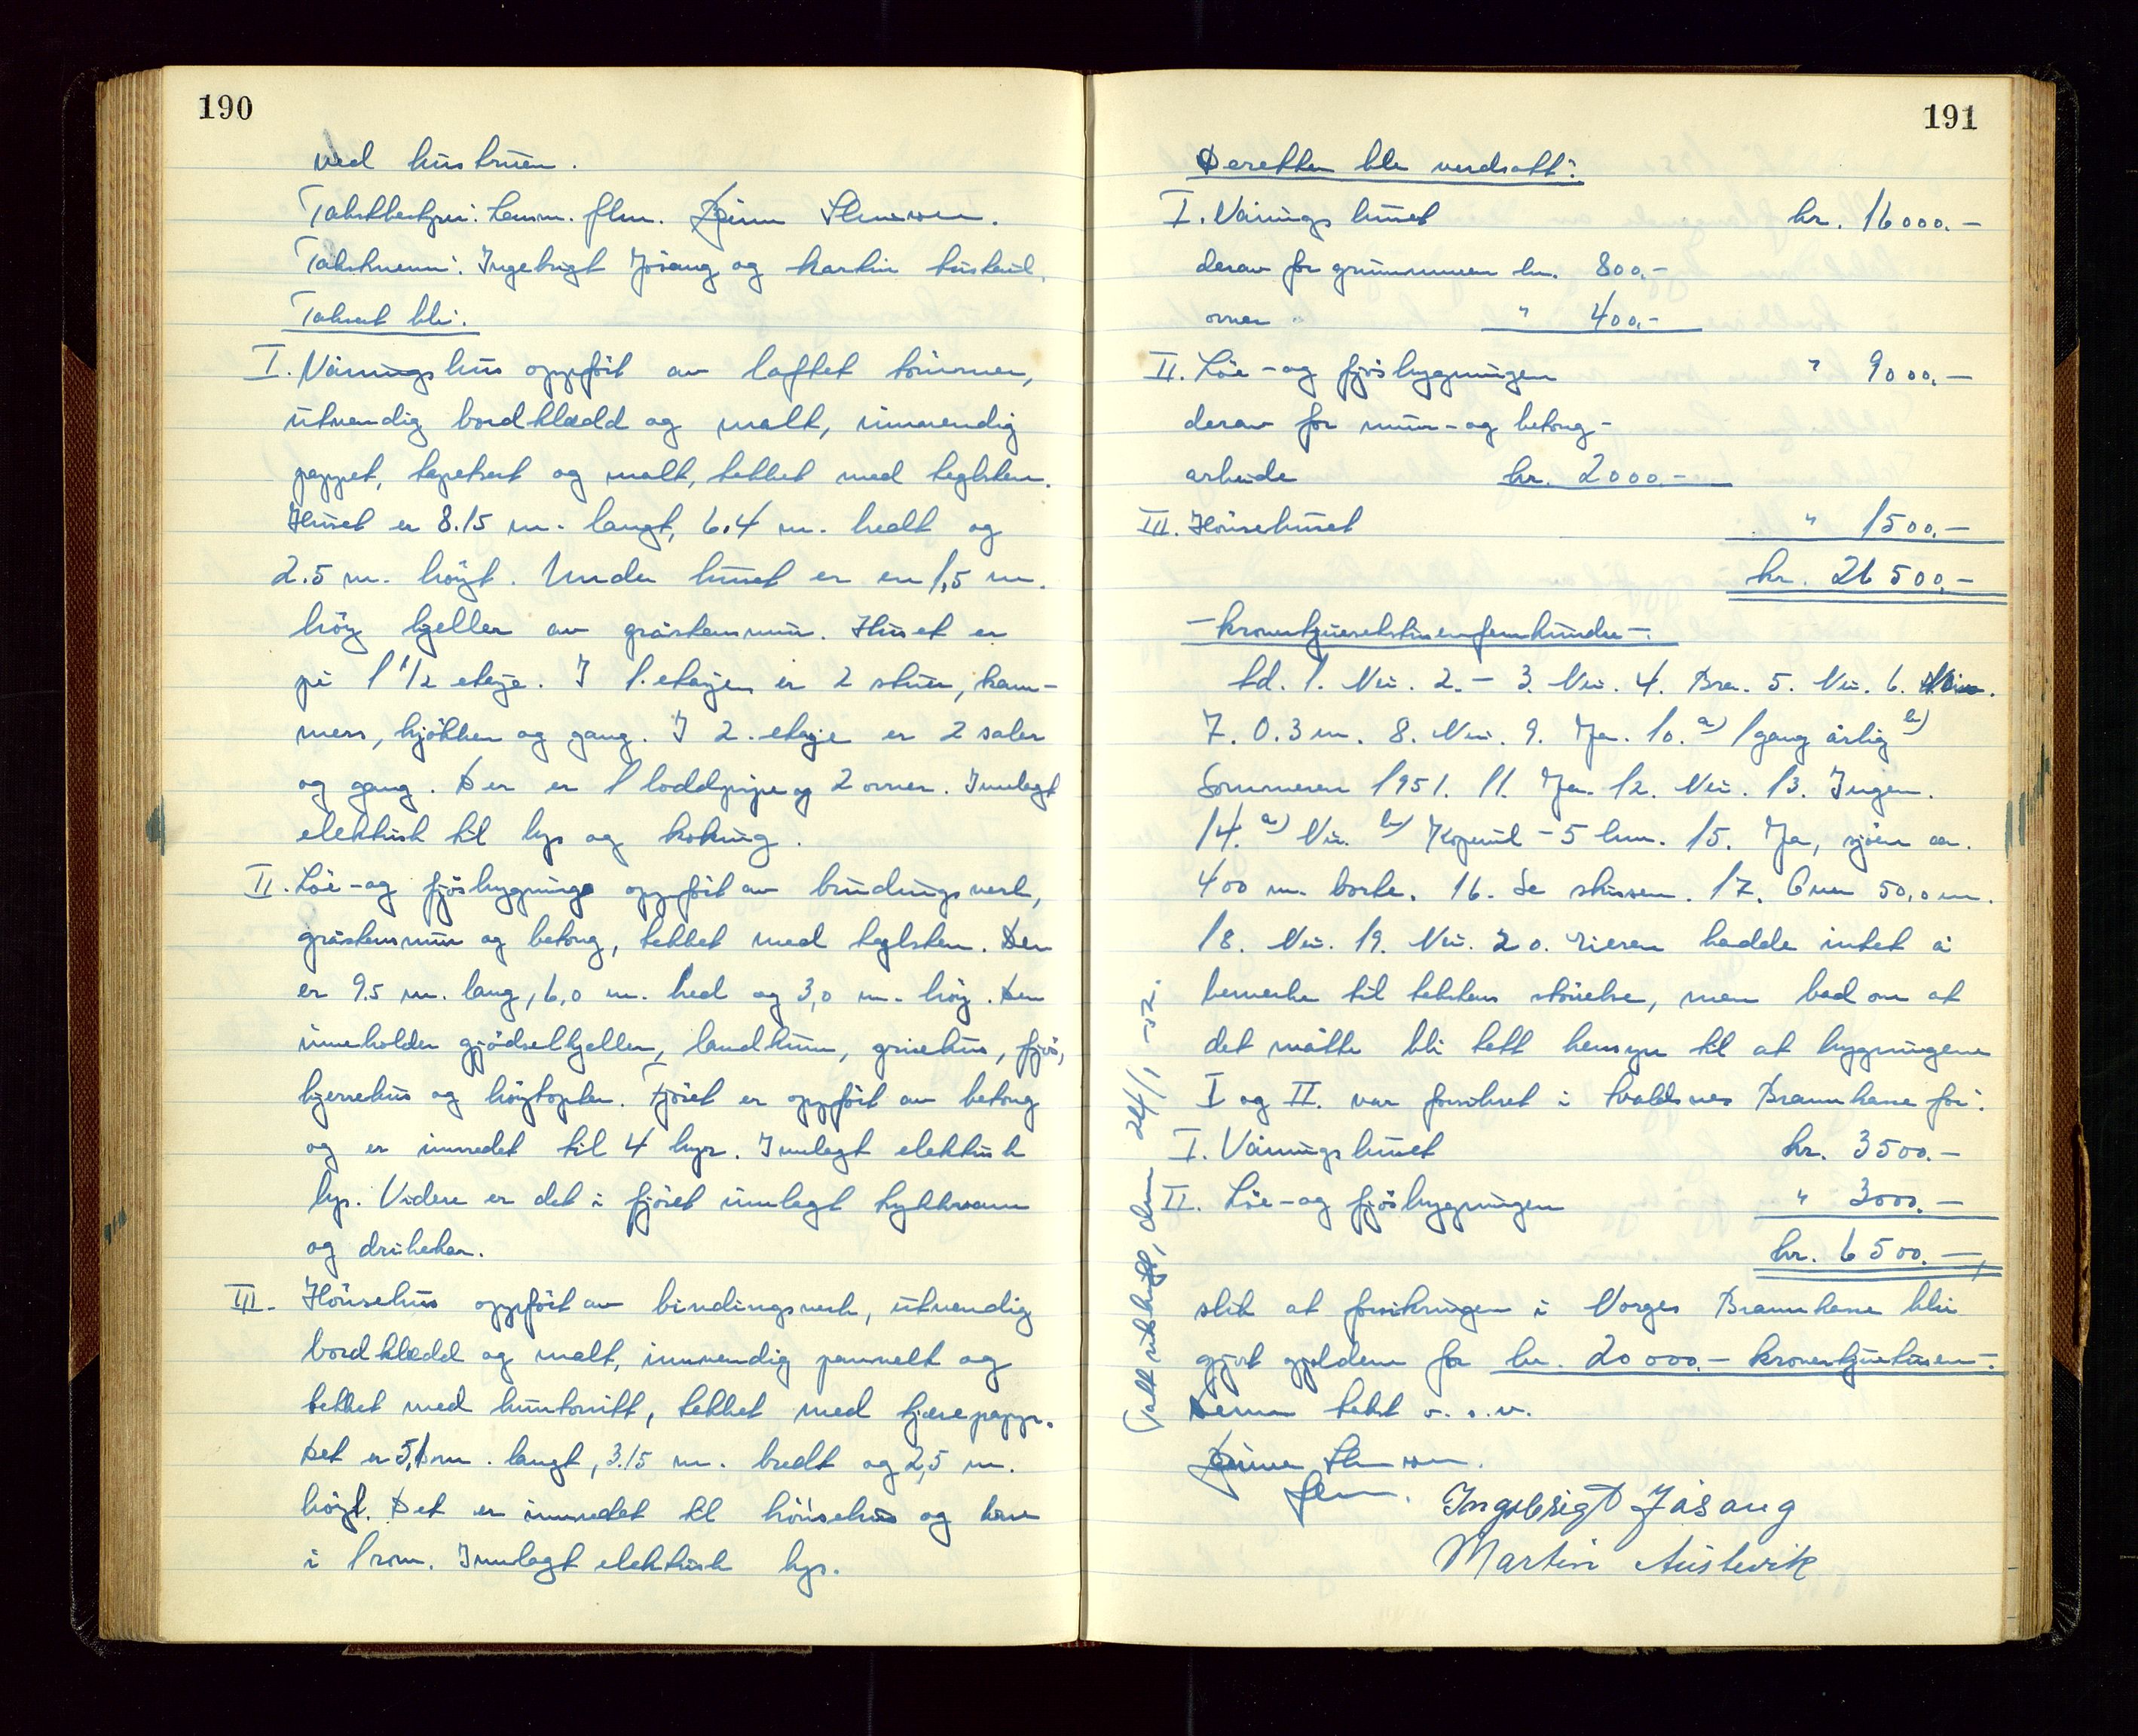 190
ved hustruen.
Takstbestyrer: Lensm. flm.
Takstmenn: Ingebrigt Jösang og Martin Austevik.
Taksert ble:
I. Våningshus oppfört av laftet tömmer,
utvendig bordklædd og malt, innvendig
pappet, tapetsert og malt, tekket med teglsten.
Huset er 8.15 m. langt, 6.4 m. bredt og
2.5 m. höyt. Under huset er en 1,5 m.
höy kjeller av gråstensmur. Huset er
på 1 1/2 etasje. I 1. etasjen er 2 stuer, kam-
mers, kjökken og gang. I 2. etasje er 2 saler
og gang. Der er 1 loddpipe og 2 ovner. Innlagt
elektrisk til lys og koking.
II. Löe- og fjösbygninge oppfört av bindingsverk,
gråstensmur og betong, tekket med teglsten. Den
er 9.5 m. lang, 6,0 m. bred og 3,0 m. höy. Den
inneholder gjödselkjeller, landkum, grisehus, fjös,
kjerrehus og höytopter. Fjöset er oppfört av betong
og er innredet til 4 kyr. Innlagt elektrisk
lys. Videre er det i fjöset innlagt trykkvann
og drikekar.
III. Hönsehus oppfört av bindingsverk, utvendig
bordklædd og malt, innvendig pannelt og
tekket med huntonitt, tekket med tjærepapp.
Det er 5,1 m. langt, 3.15 m. bredt og 2,5 m.
höyt. Det er innredet til hönsehus og
i 1 rom. Innlagt elektrisk lys.
191
Deretter ble verdsatt:
I. Våningshuset kr. 16000.-
derav for grunnmuren kr. 800.-
ovner " 400.-
II. Löe- og fjösbygningen " 9000.-
derav for mur- og betong-
arbeide kr. 2000.-
III. Hönsehuset " 1500.-
kr. 26500.-
-kronertjueseksstusenfemhundre-.
td. 1. Nei. 2. - 3. Nei. 4. Bra. 5. Nei. 6. Nei.
7. 0.3 m. 8. Nei. 9. Ja. 10. a) 1 gang årlig b)
Sommeren 1951. 11. Ja. 12. Nei. 13. Ingen.
14. a) Nei. b) Kopervik - 5 km. 15. Ja, sjöen ca.
400 m. borte. 16. Se skissen. 17. Over 50,0 m.
18. Nei. 19. Nei. 20. Eieren hadde intet å
bemerke til takstens störrelse, men bad om at
det måtte bli tatt hensyn til at bygningene
I og II. var forsikret i Avaldsnes Brannkasse for:
I. Våningshuset kr. 3500.-
II. Löe- og fjösbygningen " 3000.-
kr. 6500.-,
slik at forsikringen i Norges Brannkasse blir
gjort gjeldene for kr. 20000.- kronertjuetusen-.
Denne takst o. s. v.
flm.
Ingebrigt Jåsang
Martin Austevik
Tatt utskrift, den 24/1-52.